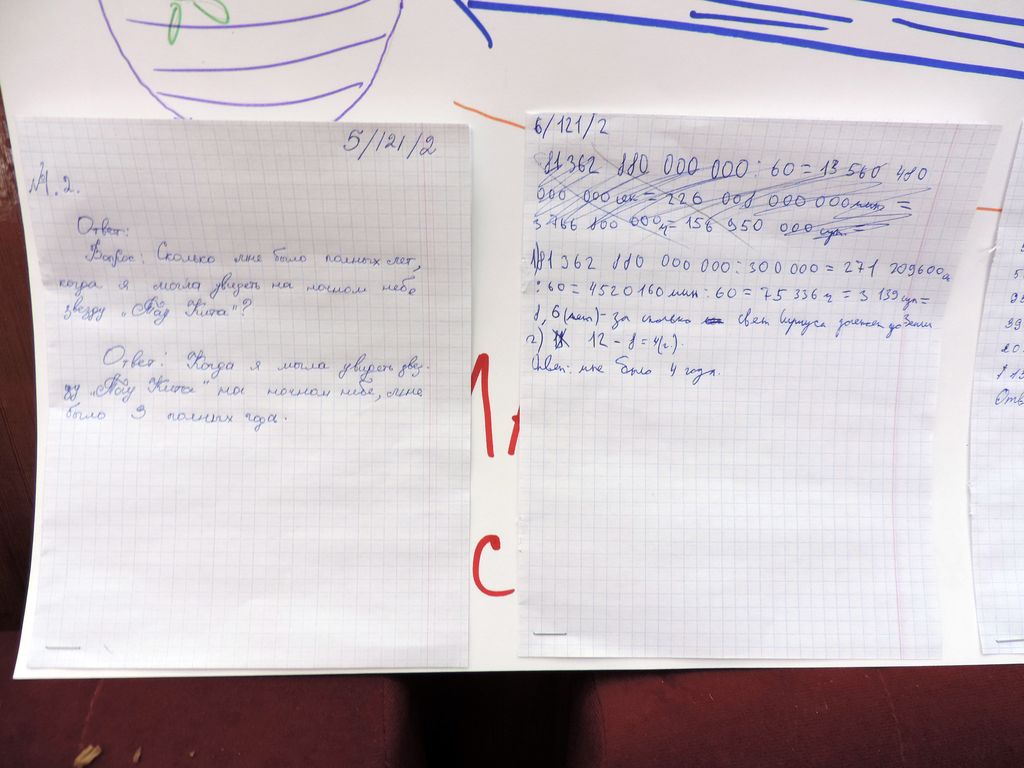 5/121/2
№1.2.
Ответ:
Вопрос: Сколько мне было полных лет,
когда я могла увидеть на ночном небе
звезду „Тау Кита"?
Ответ: Когда я могла увидеть звез-
ду „Тау Кита" на ночном небе, мне
было 3 полных года.
6/121/2
81 362 880 000 000 : 60 = 13 560 480
000 000 сек = 226 008 000 000 мин =
3 766 800 000 ч = 156 950 000 сут =
1) 81 362 880 000 000 : 300 000 = 271 209 600 с
: 60 = 4520160 мин : 60 = 75 336 ч = 3 139 сут =
8,6 (лет) - за сколько свет Сириуса долетел до Земли
2) 12 - 8 = 4(г).
Ответ: мне было 4 года.
Отв